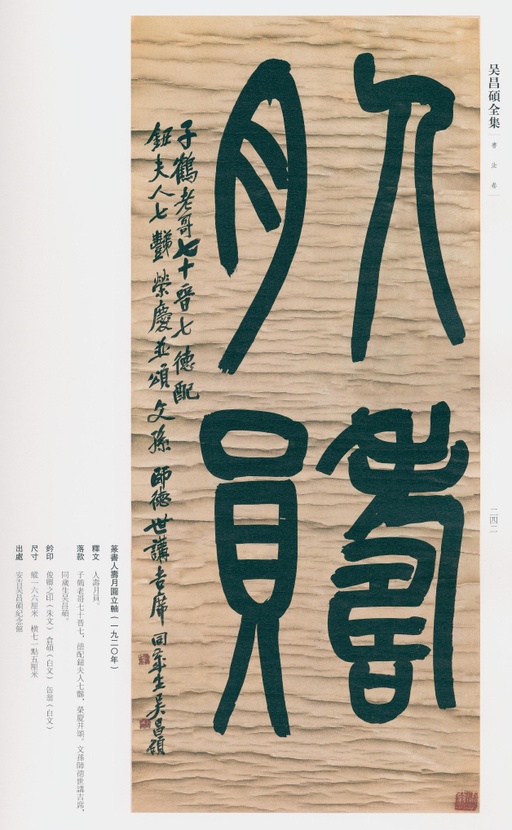 吴昌碩全集
書法卷
二四二
人壽
月員
子鶴老哥七十晉七德配
鈕夫人七豑榮慶並頌文孫師德世講吉席同歲生吴昌碩
篆書人壽月圓立軸(一九二〇年)
釋文 人壽月員。
落款 子鶴老哥七十晉七,德配鈕夫人七豑,榮慶并頌,文孫師德世講吉席,
同歲生吴昌碩。
鈐印 俊卿之印(朱文) 倉碩(白文) 缶翁(白文)
尺寸 縱一六六厘米 橫七一點五厘米
出處 安吉吴昌碩紀念館